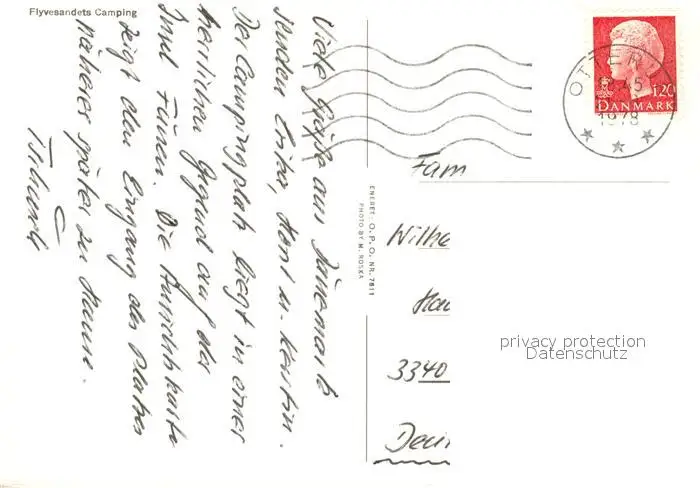 Flyvesandets Camping
Viele Grüße aus Dänemark
senden Erika, Horst u. Kerstin.
Der Campingplatz liegt in einer
herrlichen Gegend auf der
Insel Fünen. Die Ansichtskarte
zeigt den Eingang des Platzes
näheres später zu Hause.
Tschüß
ENERET: O.P.O. NR. 7811
PHOTO BY M. ROSKA
OTTER
1978
1.20
DANMARK
Fam
Wilhe
Hau
3340
privacy protection
Datenschutz